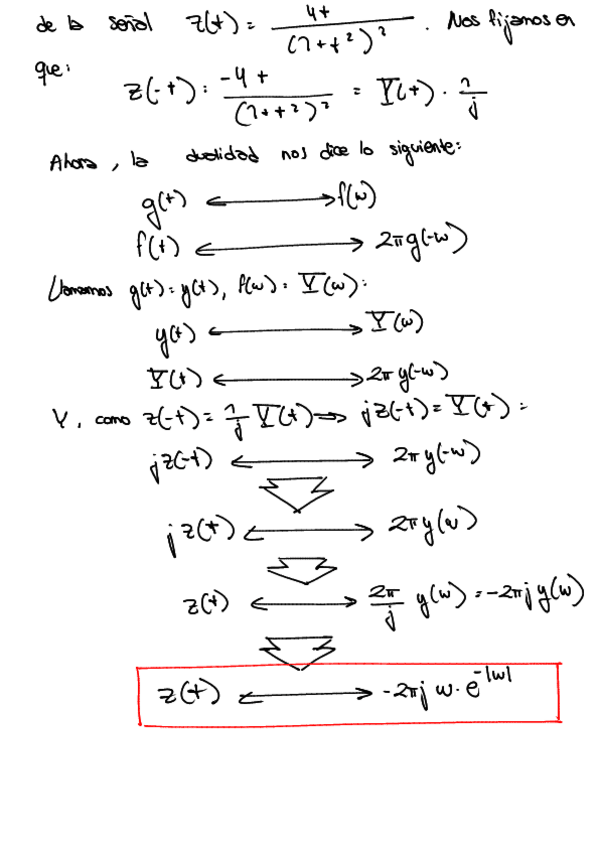 de la señal z(t) = 4t / (1+t²)² . Nos fijamos en
que:
z(-t) : -4t / (1+t²)² = Y(t) · 1/j
Ahora, la dualidad nos dice lo siguiente:
g(t) ⟷ f(w)
f(t) ⟷ 2π g(-w)
Llamemos g(t) = y(t), f(w) = Y(w) :
y(t) ⟷ Y(w)
Y(t) ⟷ 2π y(-w)
Y, como z(-t) = 1/j Y(t) ⇒ j z(-t) = Y(t) :
j z(-t) ⟷ 2π y(-w)
j z(t) ⟷ 2π y(w)
z(t) ⟷ 2π/j y(w) = -2π j y(w)
z(t) ⟷ -2π j w · e^-|w|